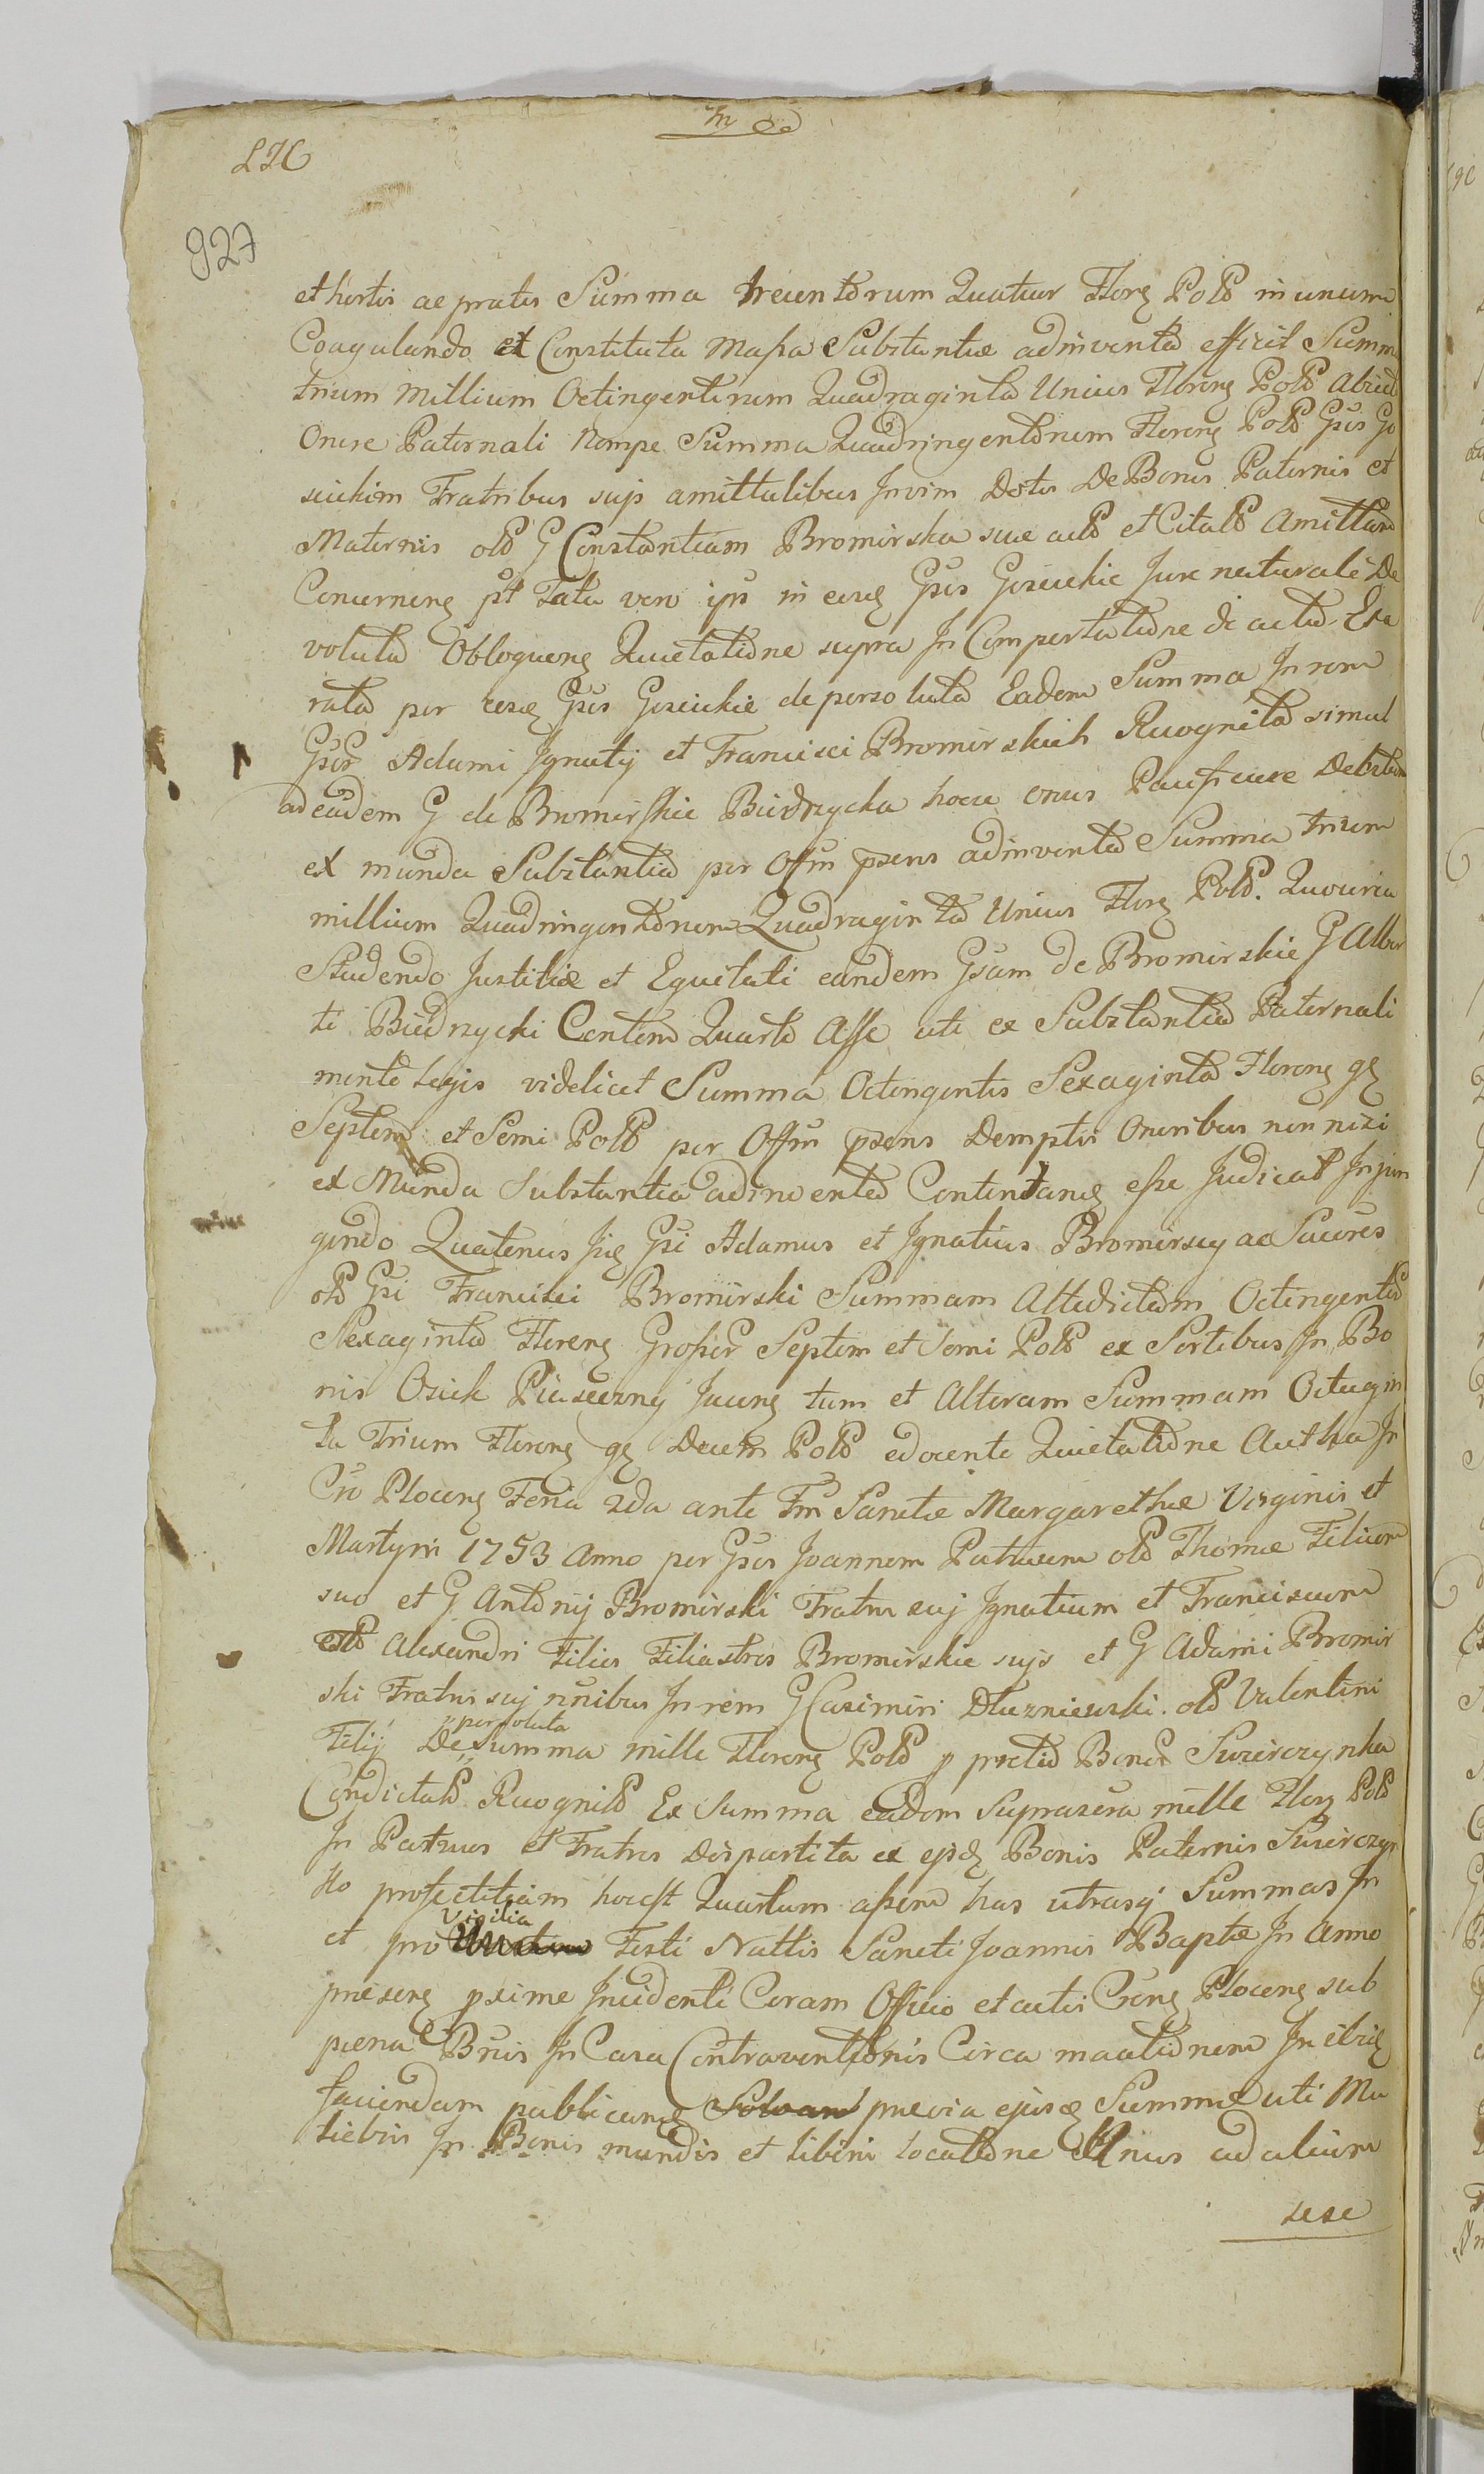 In
927
et hortis ac pratis Summa trecentorum Quatuor Flor Pold in unum
Coagulando et Constituta Massa Substantiæ adinventa efficit Summ
trium Millium Octingentorum Quadraginta Unius Floren Pold Abind
Onere Paternali Nempe Summa Quadringentorum Floren Pold Gsis Go
scickim Fratribus sujs amittalibus In vim Dotis De Bonis Paternis et
Maternis old G Constantiam Bromirska suæ actd et Citatd Amittam
Concernen pt Fata vero ips in eosq Gsos Gosickie Jure naturali De
voluta Obloquen Quietatione supra In Comportatione de acta Exa
rata per eosq Gsos Gosickie de persoluta Eadem Summa In rem
Gsor Adami Ignatij et Francisci Bromirskich Recognita simul
ad eadem G de Bromirskie Biedrzycka hocce onus Pacificare Debitum
ex munda Substantia per Offm psens adinventa Summa trium
millium Quadringentorum Quadraginta Unius Flor Pold. Quocirca
Studendo Justitiæ et Equitati eandem Gsam de Bromirskie G Alber
ti Biedrzycki Contem Quarto Asse uti ex Substantia Paternali
mente Legis videlicet Summa Octingentis Sexaginta Floren gs
Septem et Semi Pold per Offm psens Demptis Oneribus non nisi
ex Munda Substantia adinventa Contentanq esse Judicat Injun
gendo Quatenus Jiq Gsi Adamus et Ignatius Bromirscy ac Succres
old Gsi Francisci Bromirski Summam Attadictam Octingenta
Sexaginta Floren Grosser Septem et Semi Pold ex Sortibus In Bo
nis Osiek Piaseczny Jacen tum et Alteram Summam Octugin
ta Trium Floren gs Decem Pold edocente Quietatione Authen In
Cro Plocen Feria 2da ante Fm Sanctæ Margarethæ Virginis et
Martyris 1753 Anno per Gsos Joannem Patruum old Thomæ Filium
suo et G Antonij Bromirski Fratris suj Ignatium et Franciscum
old Alexandri Filios Filiastros Bromirskie sujs et G Adami Bromir
ski Fratris suj nnibus In rem G Casimiri Dłuzniewski old Valentini
Filij De persoluta summa mille Floren Pold p pretio Bonor Swierczynka
Condictatd Recognitd Ex Summa eadem Suprasera mille Flor Pold
In Patruos et Fratres Dispartita ex ejsdq Bonis Paternis Swierczyn
ko profectitiam hocest Quartum assem has utrasq Summas In
et pro Vigilia Festi Nattis Sancti Joannis Baptæ In Anno
præsen pxime Incidenti Coram Officio et actis Cren Plocen sub
pæna Bnis In Casu Contraventionis Circa mentionem In ibiq
faciendam publicanq Solvant prævia ejusq Summæ uti Mu
liebris In Bonis mundis et liberis locatione Unus ad alium
sese